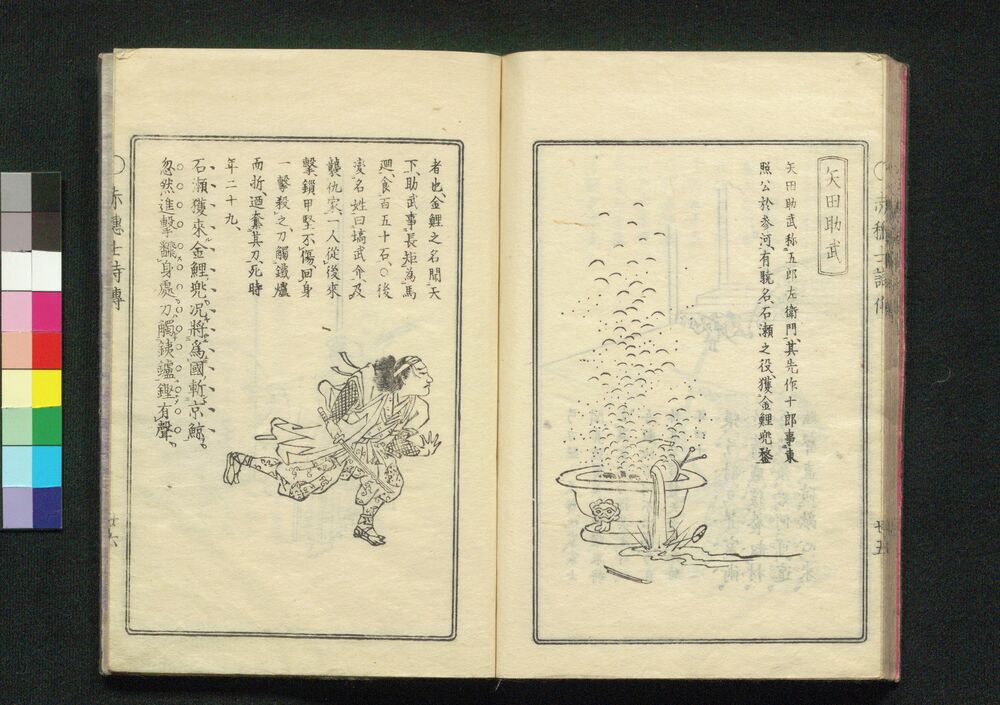 矢田助武
矢田助武称五郎左衛門其先作十郎事東
照公於参河有驍名石瀬之役獲金鯉兜鍪
廿五
者也金鯉之名聞天
下助武事長矩為馬
廻食百五十石○後
変名姓曰塙武介及
襲仇家一人従後来
撃鎖甲堅不傷回身
一撃殺之刀觸鐵爐
而折迺奪其刀死時
年二十九、
石瀬獲來金鯉兜况將為國斬京鯨
忽然進擊飜身處刀觸銕爐鏗有聲
赤穗士詩傳
廿六